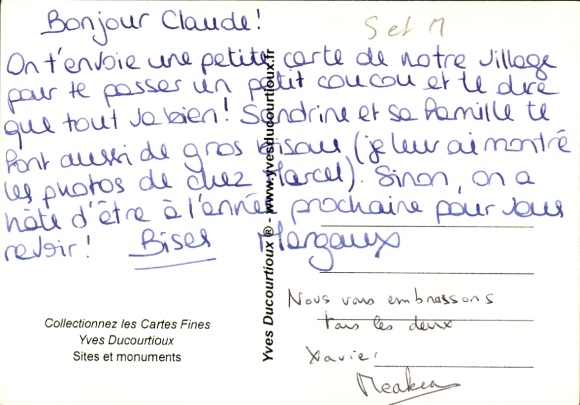 Bonjour Claude!
S et M
On t'envoie une petite carte de notre village
pour te passer un petit coucou et te dire
que tout va bien! Sandrine et sa famille te
font aussi de gros bisous (je leur ai montré
les photos de chez Marcel). Sinon, on a
hâte d'être à l'année prochaine pour vous
revoir! Bises Margaux
Nous vous embrassons
tous les deux
Xavier
Collectionnez les Cartes Fines
Yves Ducourtioux
Sites et monuments
Yves Ducourtioux ® - www.yvesducourtioux.fr